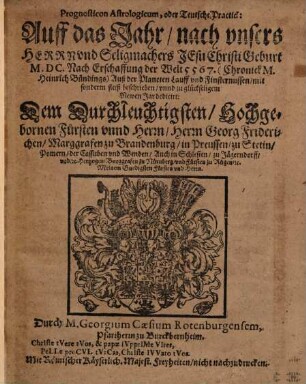 Prognosticon Astrologicum, oder Teutsche Practic:
Auff das Jahr / nach vnsers
HERRN vnd Seligmachers JEsu Christi Geburt
M. DC. Nach Erschaffung der Welt 5567. (Chronick M.
Heinrich Bündings) Auß der Planeten Lauff vnd Finsternussen / mit
sonderm fleiß beschrieben / vnnd zu glückseligem
Newen Jar dediciert:
Dem Durchleuchtigsten / Hochge-
bornen Fürsten vnnd Herrn / Herrn Georg Frideri-
chen / Marggrafen zu Brandenburg / in Preussen / zu Stetin /
Pomern / der Cassuben vnd Wenden / Auch in Schlesien / zu Jägerndorff /
Hertzogen / Burggrafen zu Nürnberg vnd Fürsten zu Rügen /
Meinem Gnedigsten Fürsten vnd Herrn.
Durch M. Georgium Cæsium Rotenburgensem,
Pfarrherrn zu Burckbernheim.
Christe
Christe IVVato
Mit Römischer Käyserlich. Majest. Freyheiten / nicht nachzudrucken.